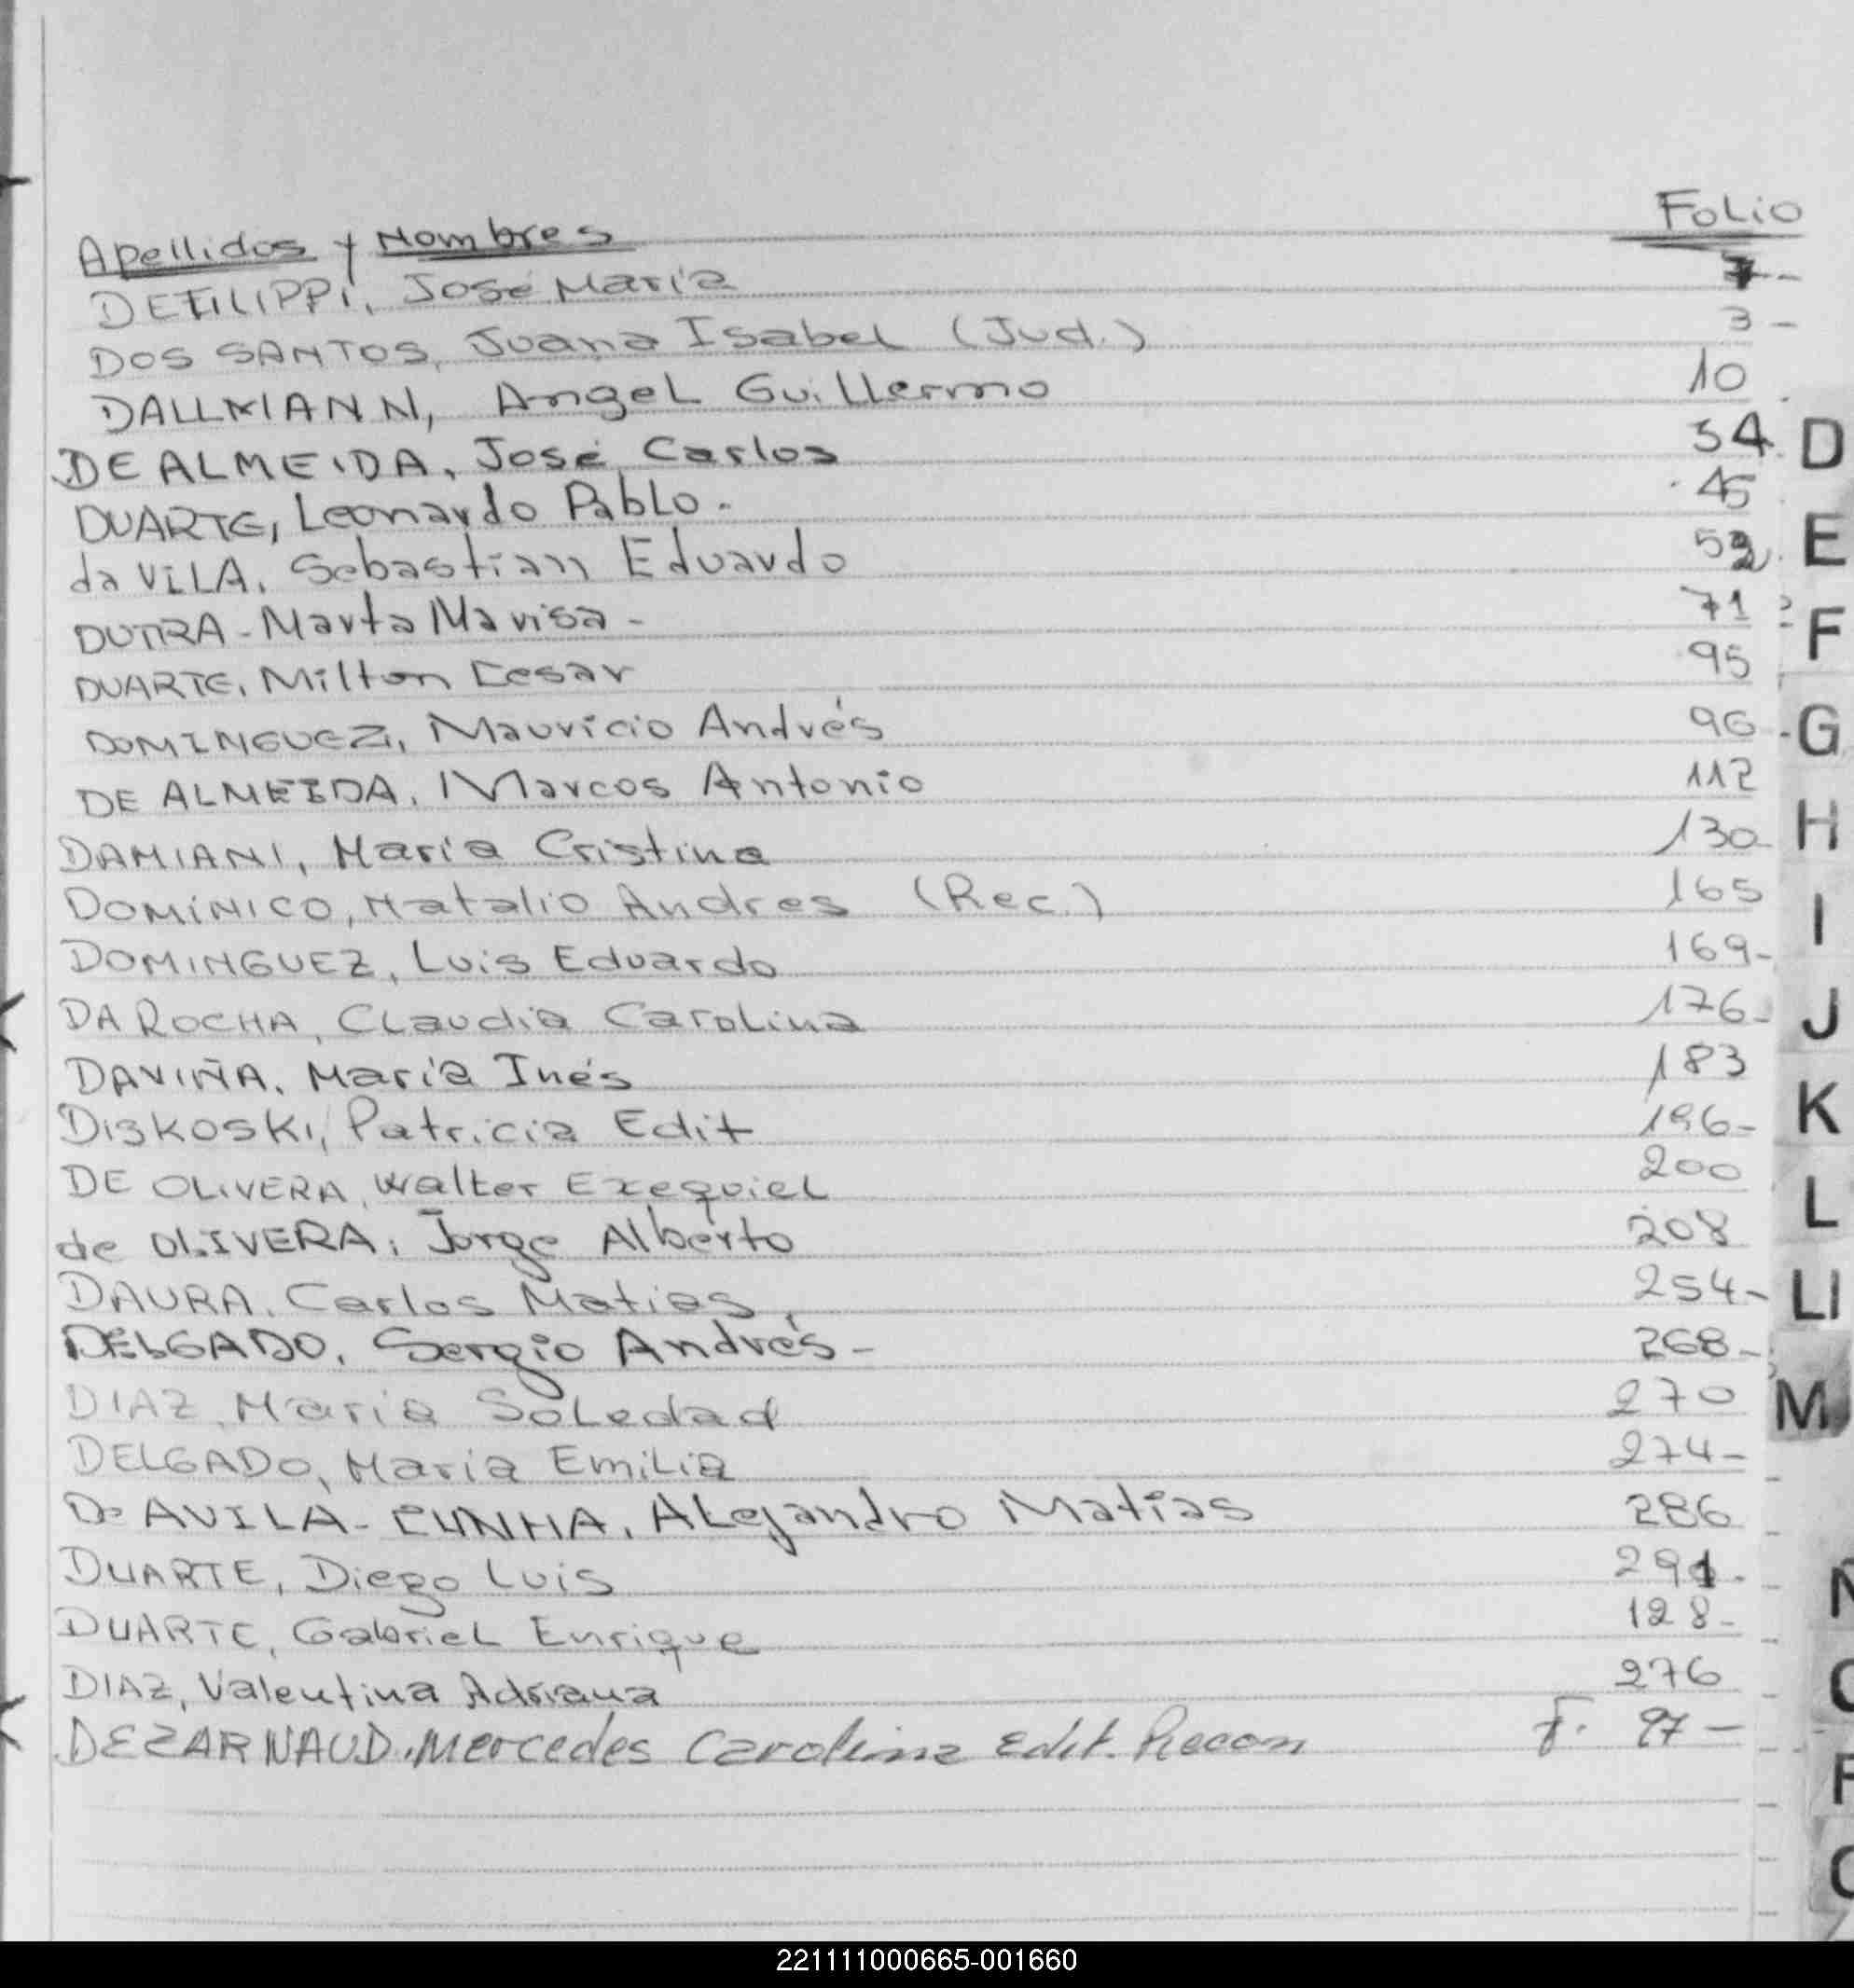 Apellidos y Nombres Folio
DEFILIPPI, José María 7-
DOS SANTOS, Juana Isabel (Jud.) 3-
DALLMANN, Angel Guillermo 10
DE ALMEIDA, José Carlos 34
DUARTE, Leonardo Pablo. 45
da VILA, Sebastian Eduardo 52
DUTRA - Marta Marisa - 71
DUARTE, Milton Cesar 95
DOMINGUEZ, Mauricio Andrés 96
DE ALMEIDA, Marcos Antonio 112
DAMIANI, María Cristina 130
DOMÍNICO, Natalio Andres (Rec.) 165
DOMINGUEZ, Luis Eduardo 169-
DA ROCHA, Claudia Carolina 176-
DAVIÑA, María Inés 183
DISKOSKI, Patricia Edit 196-
DE OLIVERA, Walter Exequiel 200
de OLIVERA, Jorge Alberto 208
DAURA, Carlos Matias, 254-
DELGADO, Sergio Andrés - 268-
DIAZ, María Soledad 270
DELGADO, María Emilia 274-
D' AVILA - CUNHA, Alejandro Matías 286
DUARTE, Diego Luis 291-
DUARTE, Gabriel Enrique 128-
DIAZ, Valentina Adriana 276
DEZARNAUD. Mercedes Carolina Edit. Recon F. 97-
D
E
F
G
H
I
J
K
L
Ll
M
221111000665-001660